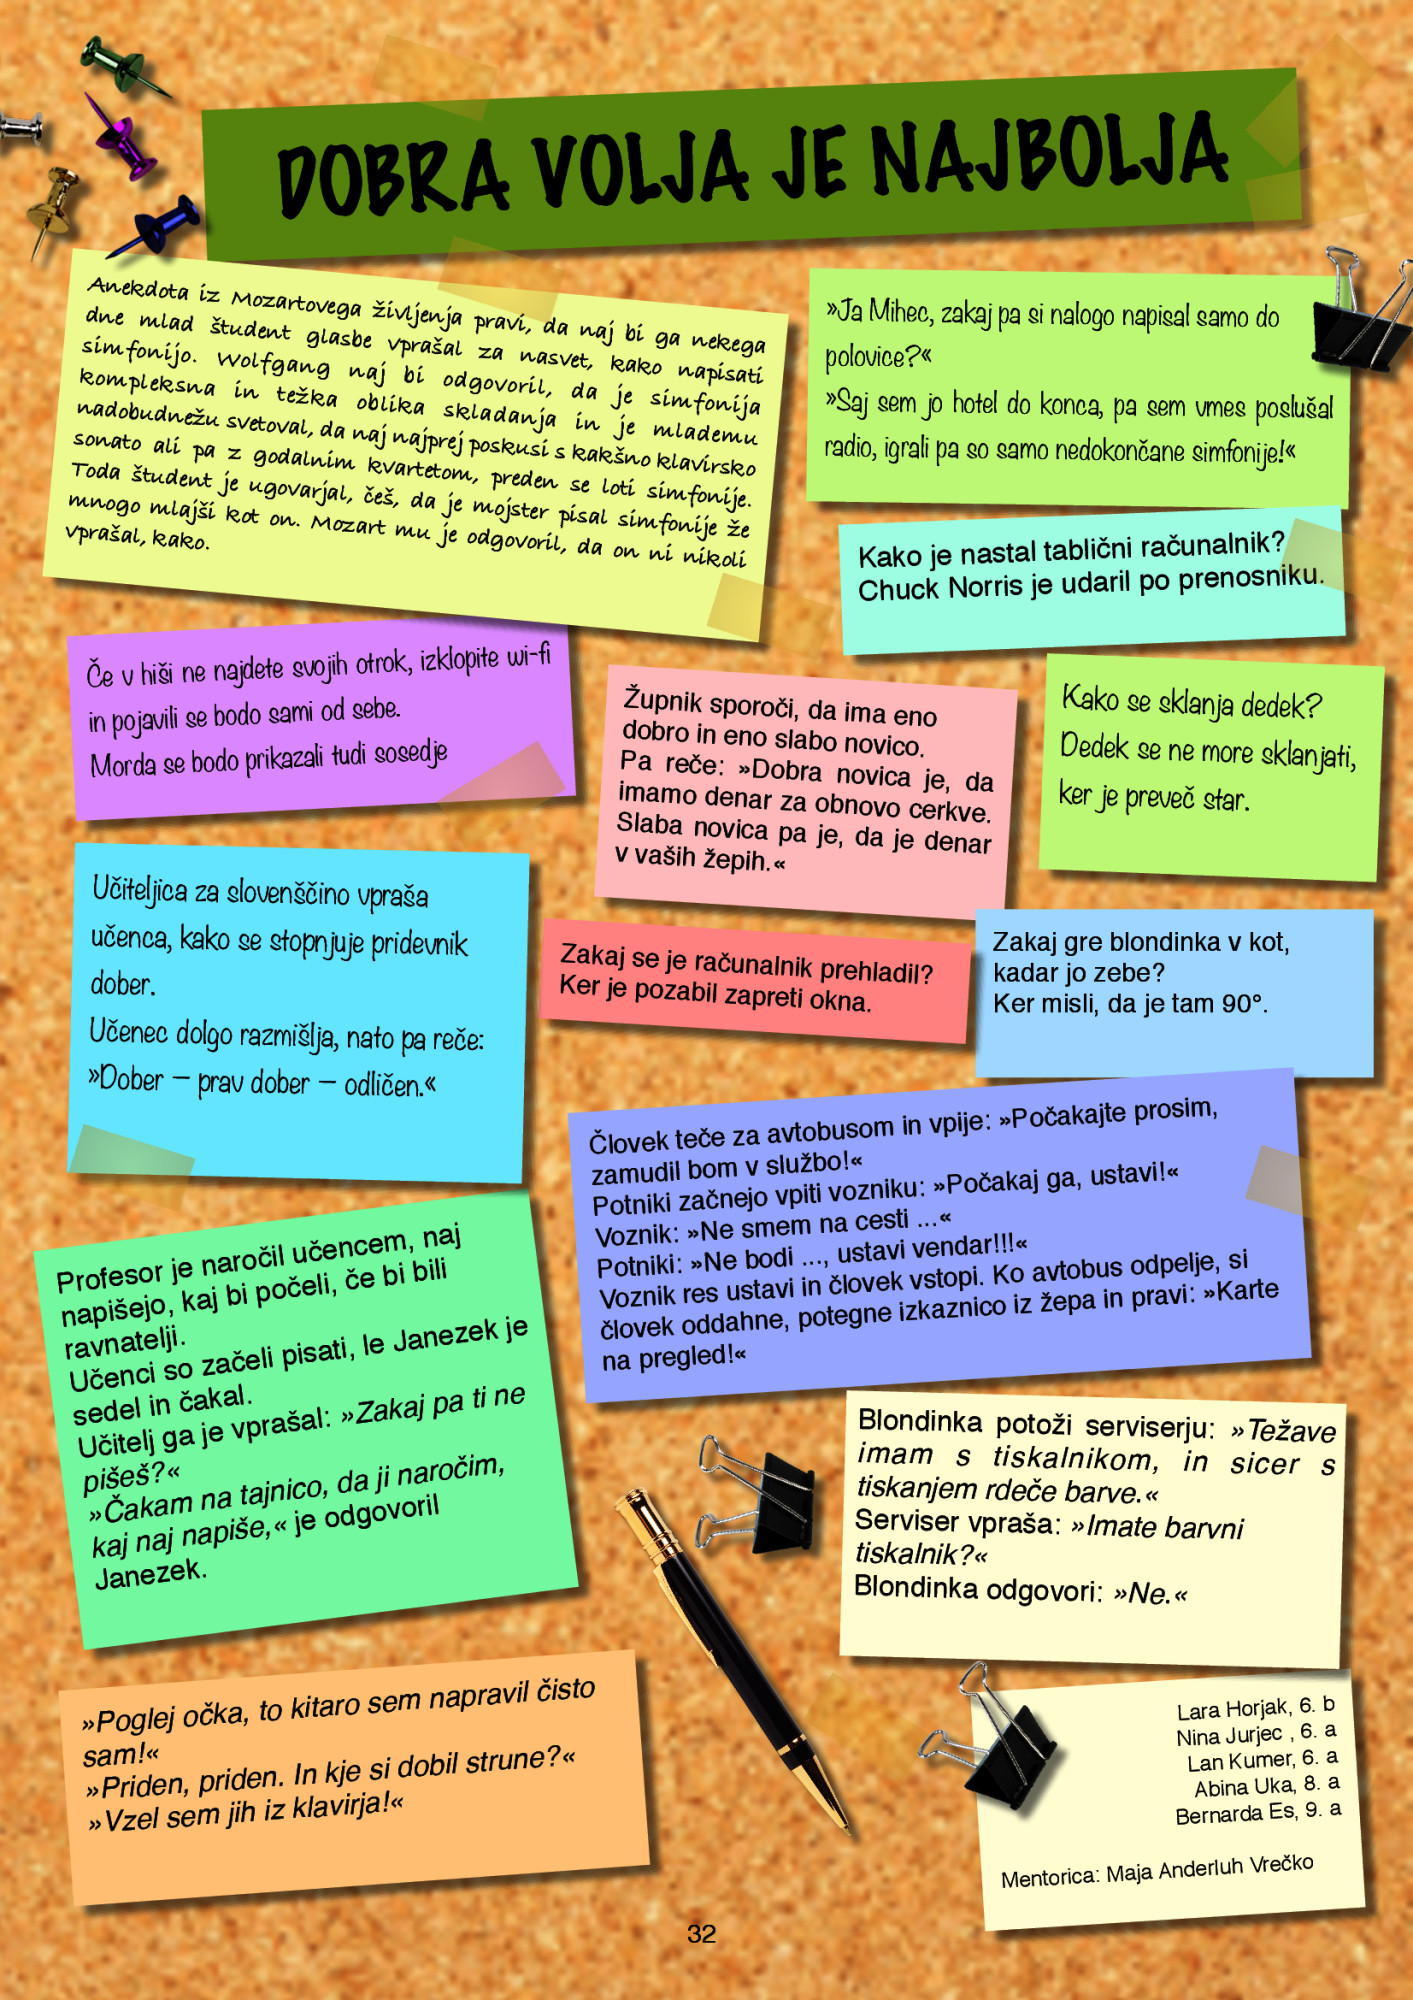 DOBRA VOLJA JE NAJBOLJA
Anekdota iz Mozartovega življenja pravi, da naj bi ga nekega
dne mlad študent glasbe vprašal za nasvet, kako napisati
simfonijo. Wolfgang naj bi odgovoril, da je simfonija
kompleksna in težka oblika skladanja in je mlademu
nadobudnežu svetoval, da naj najprej poskusi s kakšno klavirsko
sonato ali pa z godalnim kvartetom, preden se loti simfonije.
Toda študent je ugovarjal, češ, da je mojster pisal simfonije že
mnogo mlajši kot on. Mozart mu je odgovoril, da on ni nikoli
vprašal, kako.
»Ja Mihec, zakaj pa si nalogo napisal samo do
polovice?«
»Saj sem jo hotel do konca, pa sem vmes poslušal
radio, igrali pa so samo nedokončane simfonije!«
Kako je nastal tablični računalnik?
Chuck Norris je udaril po prenosniku.
Če v hiši ne najdete svojih otrok, izklopite wi-fi
in pojavili se bodo sami od sebe.
Morda se bodo prikazali tudi sosedje
Župnik sporoči, da ima eno
dobro in eno slabo novico.
Pa reče: »Dobra novica je, da
imamo denar za obnovo cerkve.
Slaba novica pa je, da je denar
v vaših žepih.«
Kako se sklanja dedek?
Dedek se ne more sklanjati,
ker je preveč star.
Učiteljica za slovenščino vpraša
učenca, kako se stopnjuje pridevnik
dober.
Učenec dolgo razmišlja, nato pa reče:
»Dober – prav dober – odličen.«
Zakaj se je računalnik prehladil?
Ker je pozabil zapreti okna.
Zakaj gre blondinka v kot,
kadar jo zebe?
Ker misli, da je tam 90°.
Človek teče za avtobusom in vpije: »Počakajte prosim,
zamudil bom v službo!«
Potniki začnejo vpiti vozniku: »Počakaj ga, ustavi!«
Voznik: »Ne smem na cesti ...«
Potniki: »Ne bodi ..., ustavi vendar!!!«
Voznik res ustavi in človek vstopi. Ko avtobus odpelje, si
človek oddahne, potegne izkaznico iz žepa in pravi: »Karte
na pregled!«
Profesor je naročil učencem, naj
napišejo, kaj bi počeli, če bi bili
ravnatelji.
Učenci so začeli pisati, le Janezek je
sedel in čakal.
Učitelj ga je vprašal: »Zakaj pa ti ne
pišeš?«
»Čakam na tajnico, da ji naročim,
kaj naj napiše,« je odgovoril
Janezek.
Blondinka potoži serviserju: »Težave
imam s tiskalnikom, in sicer s
tiskanjem rdeče barve.«
Serviser vpraša: »Imate barvni
tiskalnik?«
Blondinka odgovori: »Ne.«
»Poglej očka, to kitaro sem napravil čisto
sam!«
»Priden, priden. In kje si dobil strune?«
»Vzel sem jih iz klavirja!«
Lara Horjak, 6. b
Nina Jurjec , 6. a
Lan Kumer, 6. a
Abina Uka, 8. a
Bernarda Es, 9. a
Mentorica: Maja Anderluh Vrečko
32